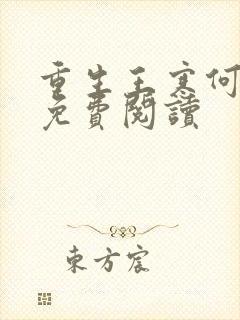 重生王寒何
免費閱讀
東方宸